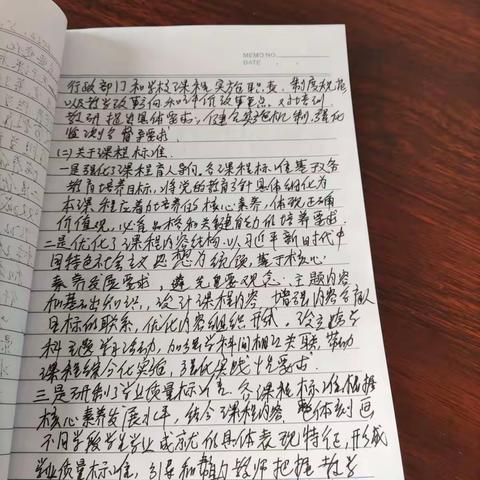 MEMO NO.
DATE
行政部门和学校课程实施职责、制度规范
以及教学改革方向和评价改革重点，对培训
教研提出具体要求，健全实施机制，强化
监测与督导要求.
(二)关于课程标准.
一是强化了课程育人导向，各课程标准基于义务
教育培养目标，将党的教育方针具体细化为
本课程应着力培养的核心素养，体现正确
价值观，必备品格和关键能力的培养要求.
二是优化了课程内容结构，以习近平新时代中
国特色社会主义思想为统领，基于核心
素养发展要求，遴选重要观念、主题内容
和基础知识，设计课程内容，增强内容与育人
目标的联系，优化内容组织形式，设立跨学
科主题学习活动，加强学科间相互关联，带动
课程综合化实施，强化实践性要求.
三是研制了学业质量标准，各课程标准根据
核心素养发展水平，结合课程内容，整体刻画
不同学段学生学业成就的具体表现特征，形成
学业质量标准，引导和帮助教师把握教学